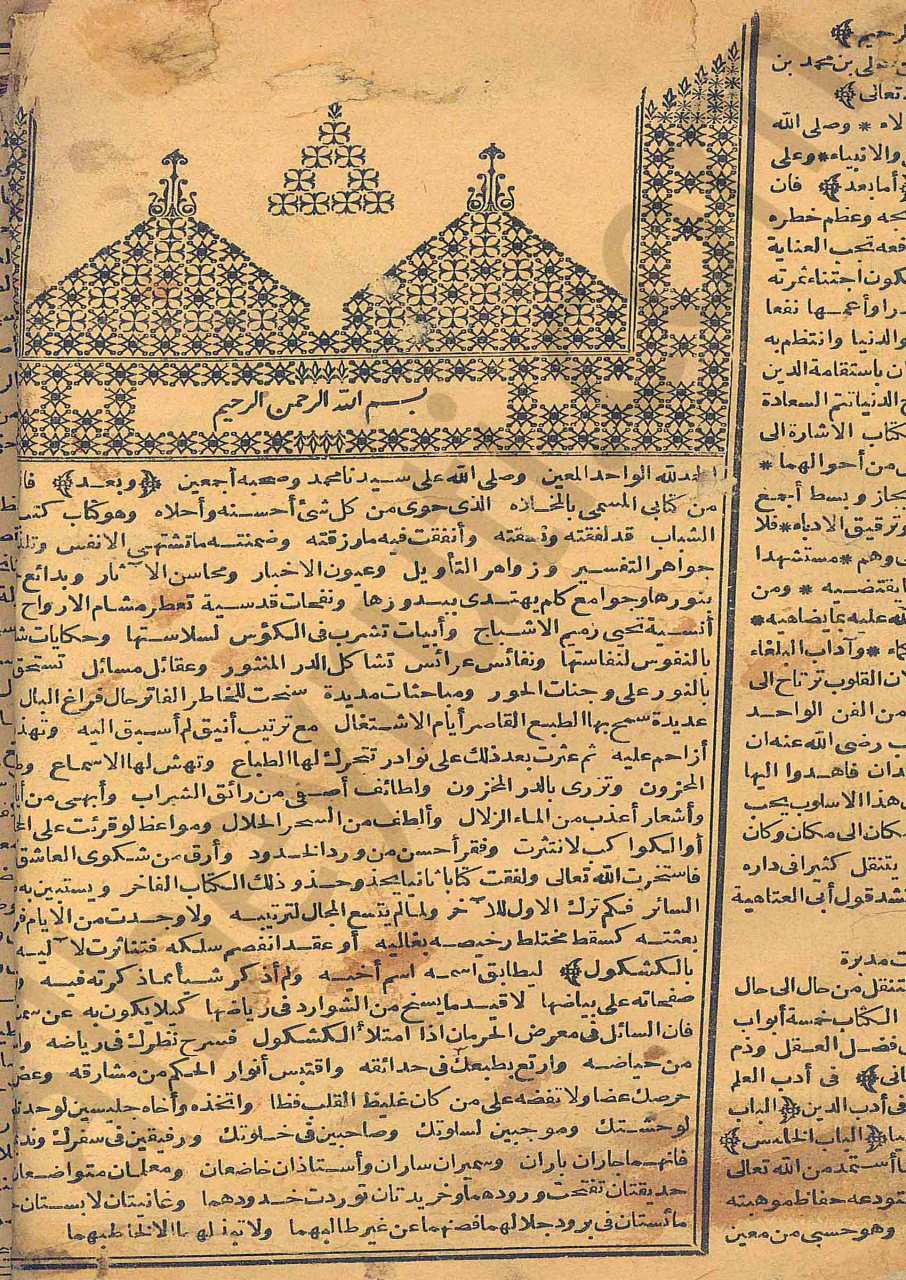 بسم الله الرحمن الرحيم
الحمد لله الواحد المعين وصلى الله على سيدنا محمد وصحبه أجمعين ﴿وبعد﴾
من كتابي المسمى بالمخلاه الذى حوى من كل شئ أحسنه وأحلاه وهو كتاب
الشباب قد لفقته ونمقته وأنفقت فيه ما رزقته وضمنته ما تشتهى الانفس
جواهر التفسير وزواهر التأويل وعيون الاخبار ومحاسن الآثار وبدائع
بنورها وجوامع كلم يهتدى ببدورها ونفحات قدسية تعطر مشام الارواح
أنسية تحيى رميم الاشباح وأبيات تشرب فى الكؤس لسلاستها وحكايات
بالنفوس لنفاستها ونفائس عرائس تشاكل الدر المنثور وعقائل مسائل تستحق
بالنور على وجنات الحور ومباحثات مديدة سنحت للخاطر الفاتر حال فراغ البال
عديدة سمح بها الطبع القاصر أيام الاشتغال مع ترتيب أنيق لم أسبق اليه
أزاحم عليه ثم عثرت بعد ذلك على نوادر تتحرك لها الطباع وتهش لها الاسماع
المحزون وتزرى بالدر المخزون ولطائف أصفى من رائق الشراب وأبهى من
وأشعار أعذب من الماء الزلال وألطف من السحر الحلال ومواعظ لو قرئت على
أو الكواكب لانتثرت وفقر أحسن من ورد الخدود وأرق من شكوى العاشق
فاستخرت الله تعالى ولفقت كتابا ثانيا يحذو حذو ذلك الكتاب الفاخر ويستبين به
السائر فكم ترك الاول للآخر ولما لم يتسع المجال لترتيبه ولا وجدت من الايام
بعثته كسقط مختلط رخيصه بغاليه أو عقد انفصم سلكه فتناثرت لآليه
بالكشكول﴾ ليطابق اسمه اسم أخيه ولم أذكر شيأ مما ذكرته فيه
صفحاته على بياضها لاقيد ما يسنح من الشوارد فى رياضها كيلا يكون به عن
فان السائل فى معرض الحرمان اذا امتلأ الكشكول فسرح نظرك فى رياضه
من حياضه وارتع بطبعك فى حدائقه واقتبس أنوار الحكم من مشارقه
حرصك عضا ولا تفضه على من كان غليظ القلب فظا واتخذه وأخاه جليسين
لوحشتك وموجبين لسلوتك وصاحبين فى خلوتك ورفيقين فى سفرك
فانهما جاران باران وسميران ساران وأستاذان خاضعان ومعلمان متواضعان
حديقتان تفتحت ورودهما وخريدتان توردت خدودهما وغانيتان لابستان
مائستان فى برود جلالهما فصنهما عن غير طالبهما ولا تبذلهما الا لخاطبهما
الرحيم﴾
على بن محمد بن
تعالى﴾
وصلى الله
والانبياء * وعلى
﴿أما بعد﴾ فان
وعظم خطره
تجب العناية
اجتناء ثمرته
وأعمها نفعا
والدنيا وانتظم به
باستقامة الدين
الدنيا تتم السعادة
الاشارة الى
من أحوالهما *
وبسط أجمع
وترقيق الادباء * فلا
وهم * مستشهدا
يقتضيه * ومن
عليه بما يضاهيه *
* وآداب البلغاء
القلوب ترتاح الى
من الفن الواحد
رضى الله عنه ان
فاهدوا اليها
هذا الاسلوب يحب
مكان الى مكان وكان
يتنقل كثيرا فى داره
قول أبى العتاهية
مدبرة
من حال الى حال
الكتاب خمسة أبواب
فضل العقل وذم
﴾ فى أدب العلم
فى أدب الدين ﴿الباب
﴿الباب الخامس﴾
أستمد من الله تعالى
حفاظ موهبته
وهو حسبى من معين